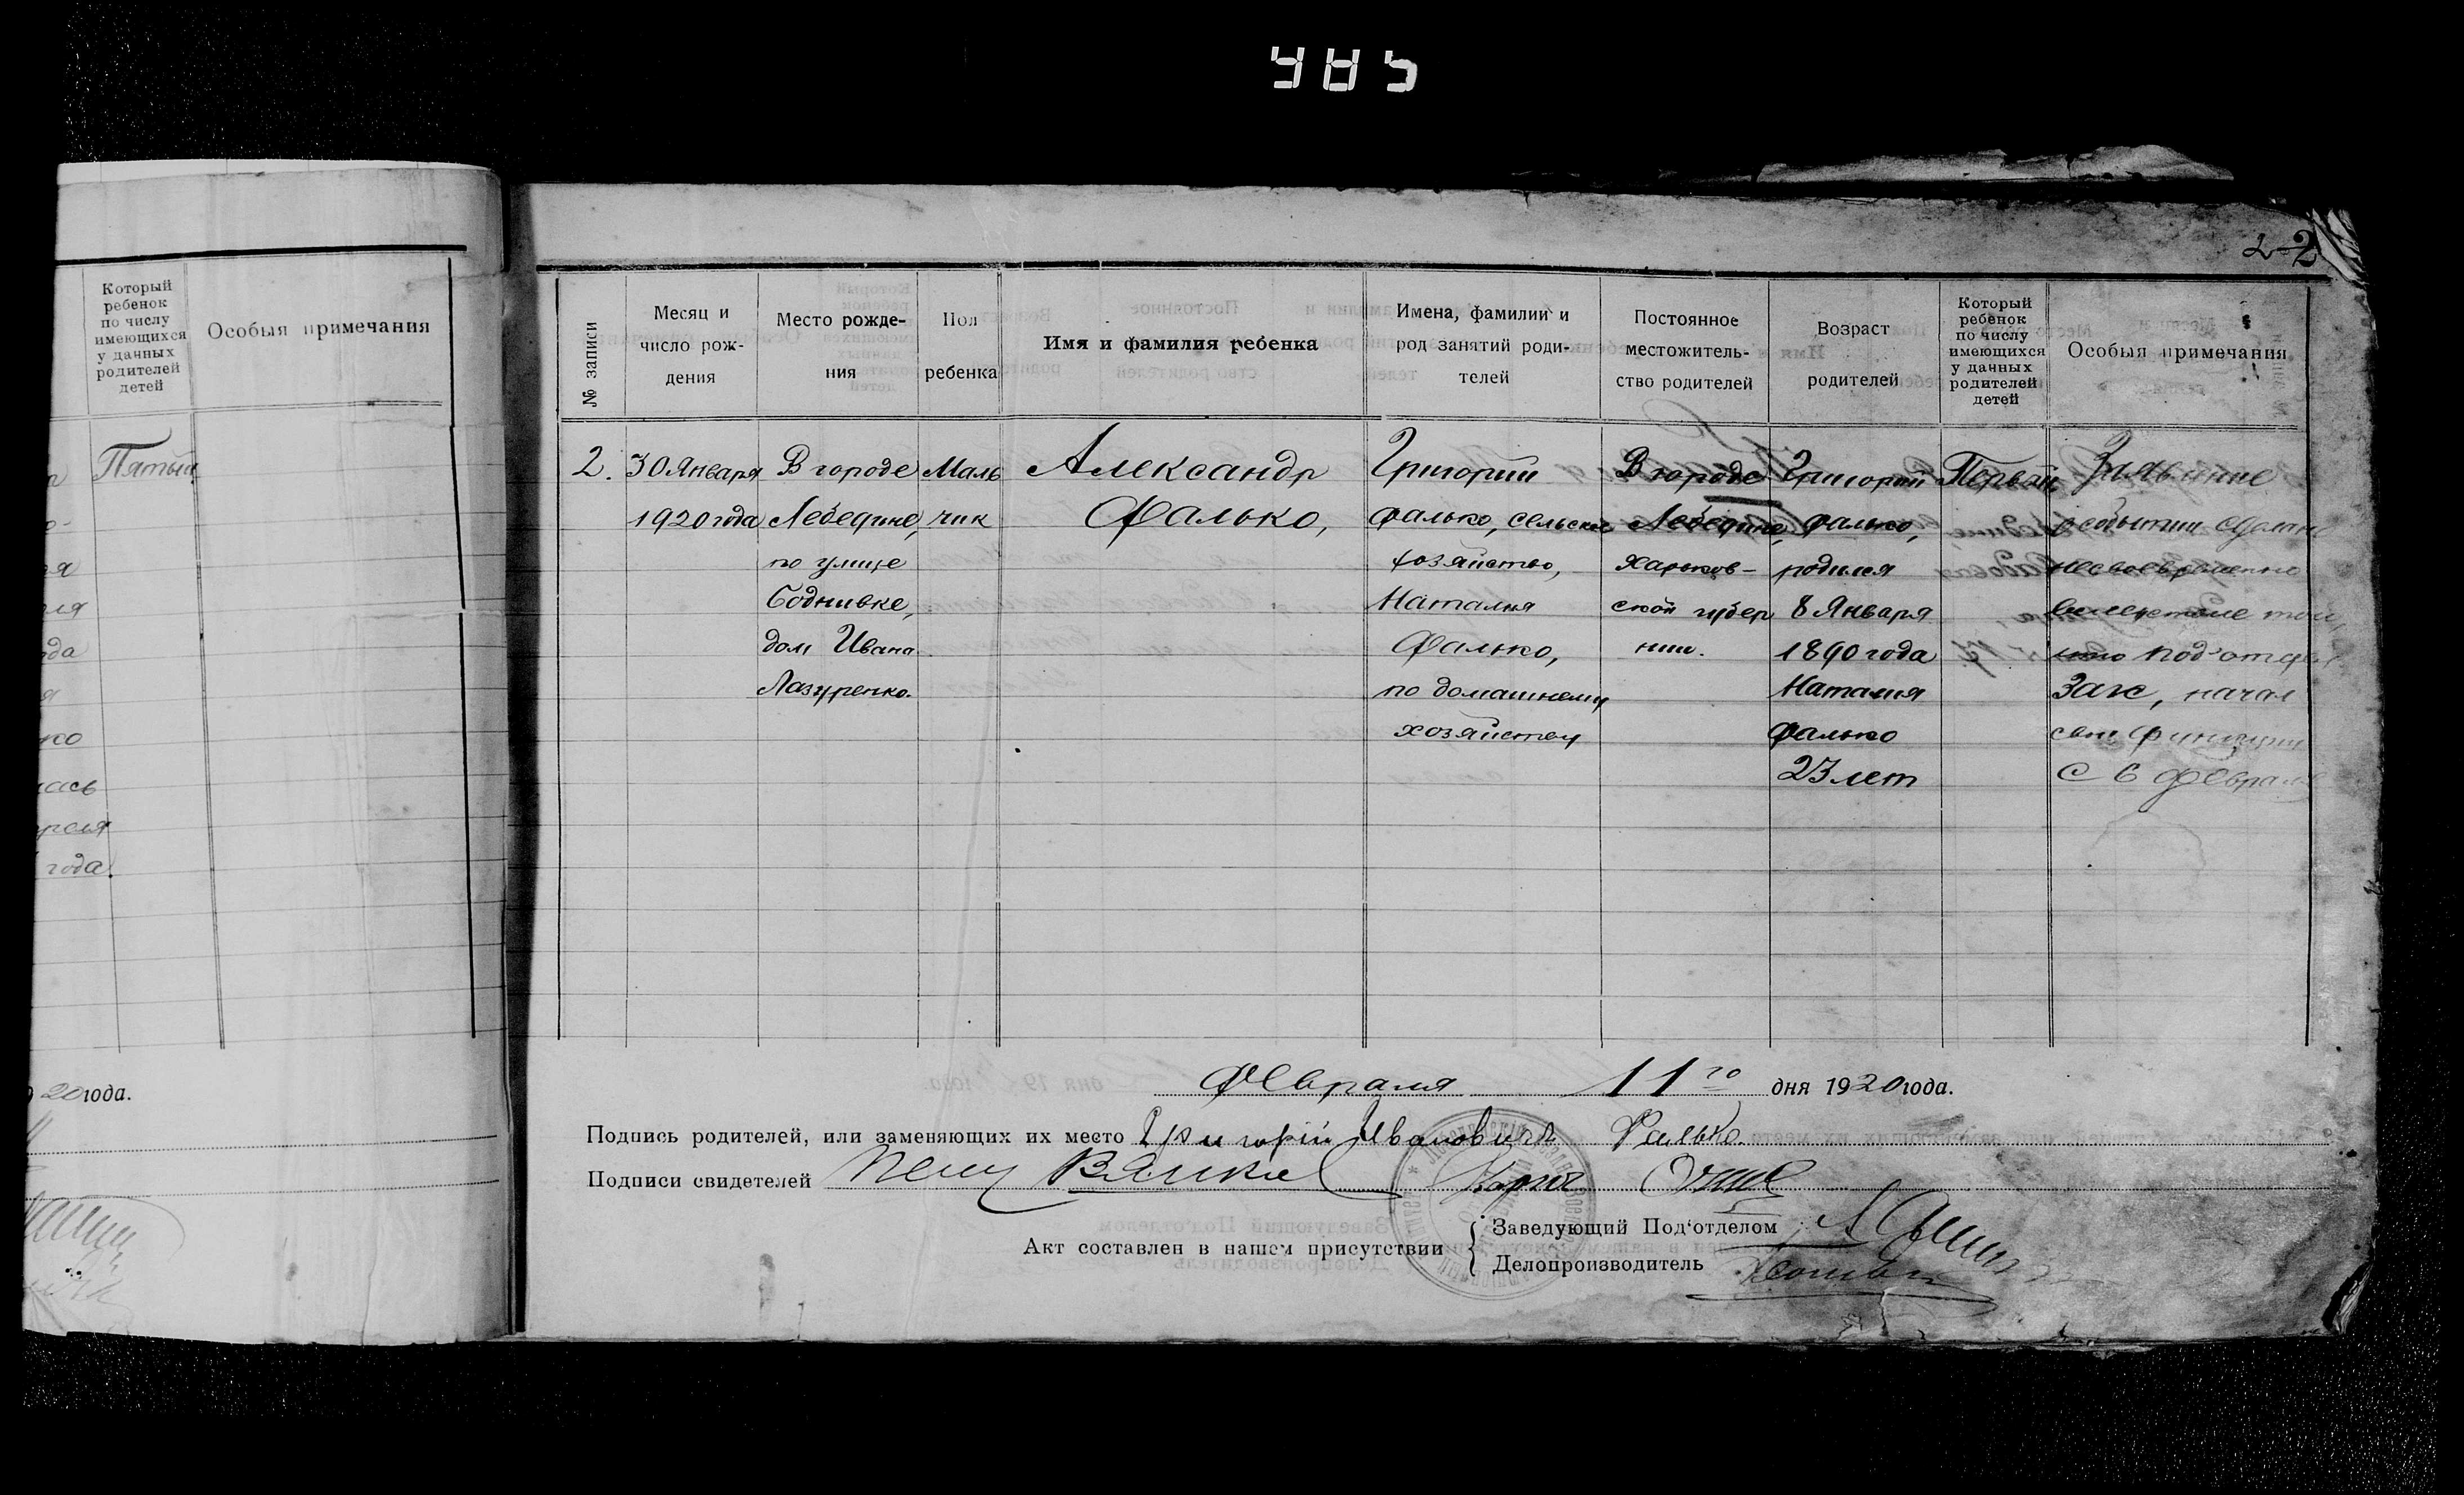 485
Который
ребенок
по числу
имеющихся
у данных
родителей
детей
Особыя примечания
Пятый
года.
20 года.
2
№ записи
Месяц и
число рож-
дения
Место рожде-
ния
Пол
ребенка
Имя и фамилия ребенка
Имена, фамилии и
род занятий роди-
телей
Постоянное
местожитель-
ство родителей
Возраст
родителей
Который
ребенок
по числу
имеющихся
у данных
родителей
детей
Особыя примечания
2.
30 Января
1920 года
В городе
Лебедине,
по улице
дом Ивана
Лазуренко.
Маль
чик
Александр
Фалько,
Григорий
Фалько, сельское
хозяйство,
Наталия
Фалько,
по домашнему
хозяйству
В городе
Лебедине,
Харьков-
ской губер
нии.
Григорий
Фалько,
родился
8 Января
1890 года
Наталия
Фалько
23 лет
Первый
Заявление
о событии сделано
несвоевременно
под'отдел
Загс, начал
свои функции
с 6 февраля
Февраля 11го дня 1920 года.
Подпись родителей, или заменяющих их место Григорій Ивановичъ Фалько.
Подписи свидетелей
Акт составлен в нашем присутствии
Заведующий Под'отделом
Делопроизводитель